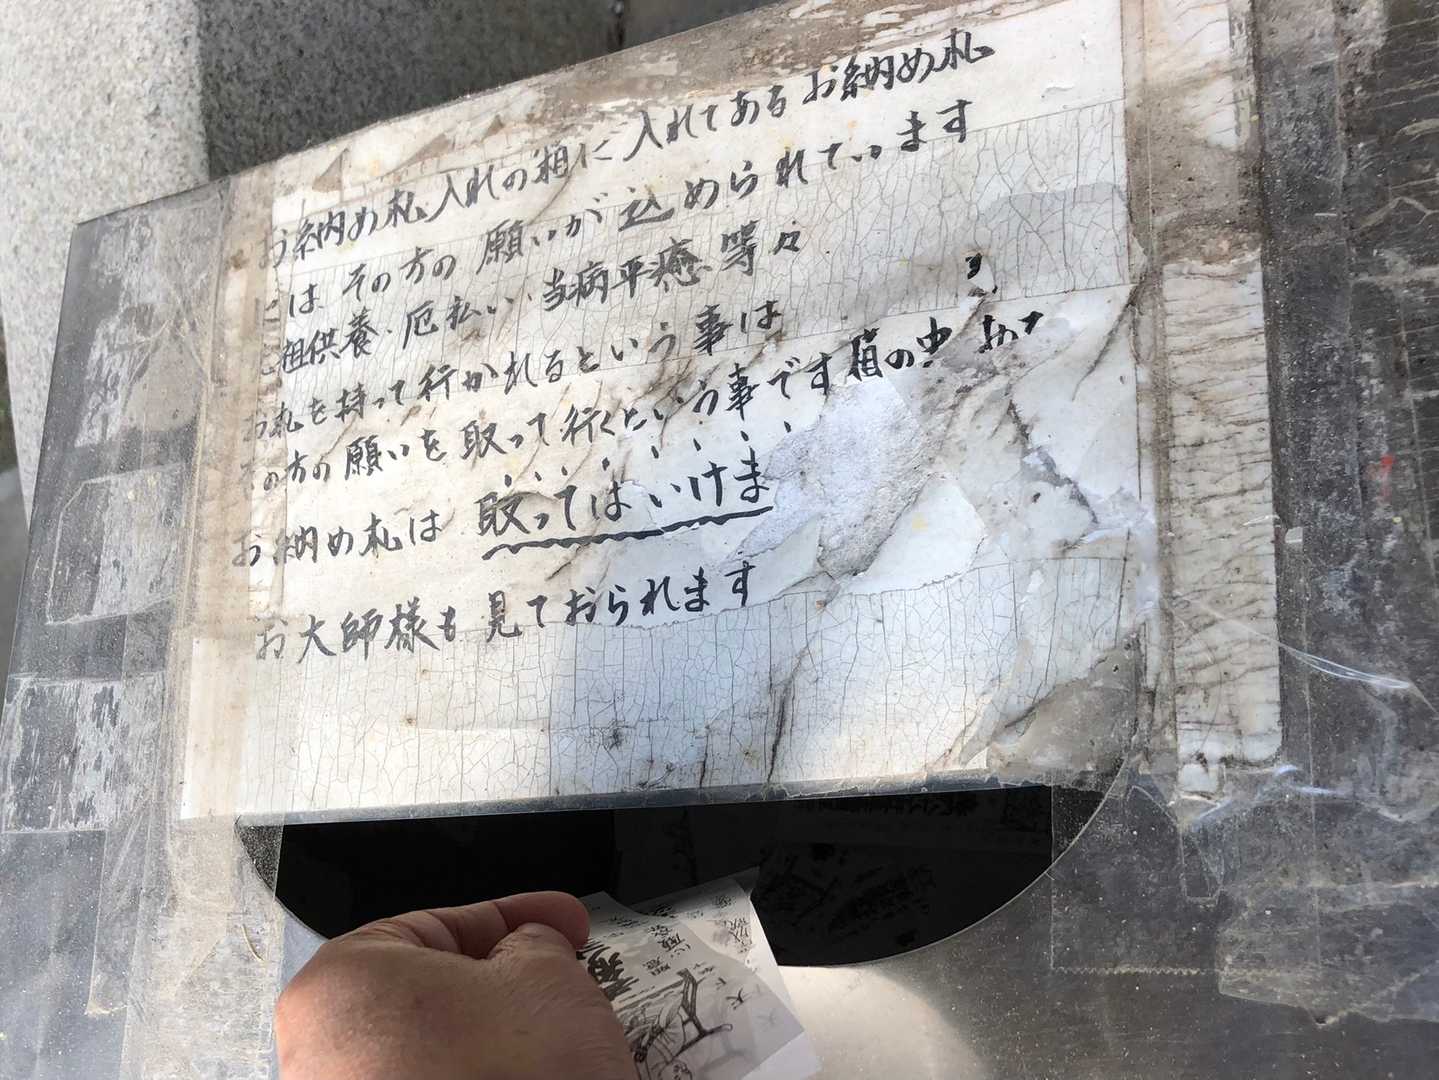 お納め札入れの箱に入れてあるお納め札
には その方の 願いが 込められています
先祖供養・厄払い・当病平癒 等々
お札を持って行かれるという事は
その方の願いを取って行くという事です 箱の中
お納め札は 取ってはいけま
お大師様も見ておられます
天下